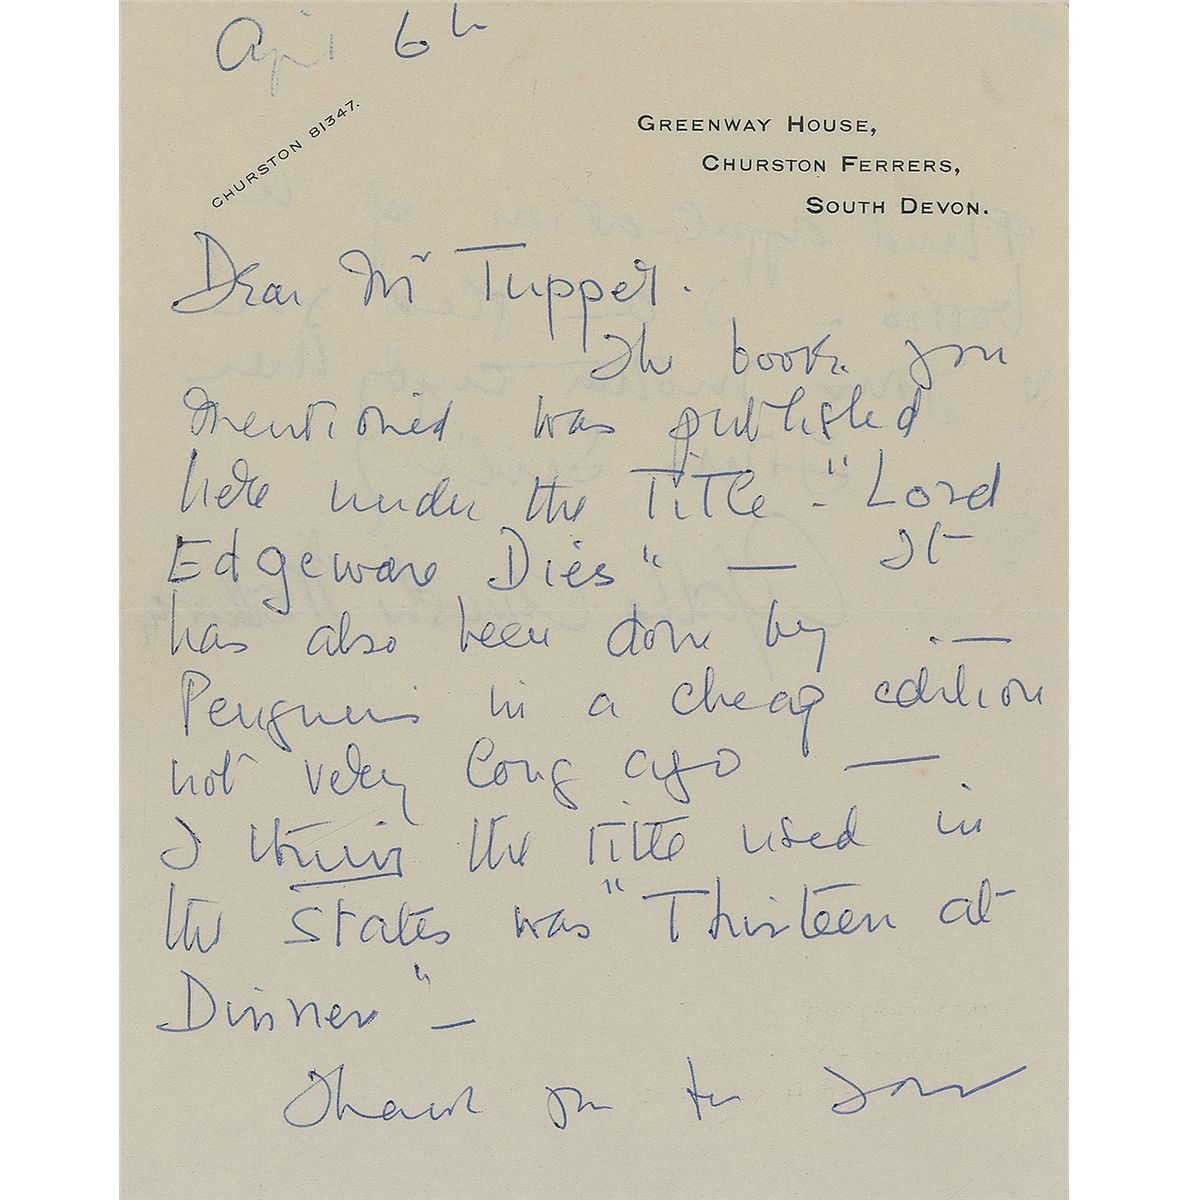 April 6th
CHURSTON 81347.
GREENWAY HOUSE,
CHURSTON FERRERS,
SOUTH DEVON.
Dear Mr Tupper.
The book you
mentioned was published
here under the title - "Lord
Edgeware Dies" — It
has also been done by . —
Penguins in a cheap edition
not very long ago —
I think the title used in
the States was "Thirteen at
Dinner" —
Thank you for your